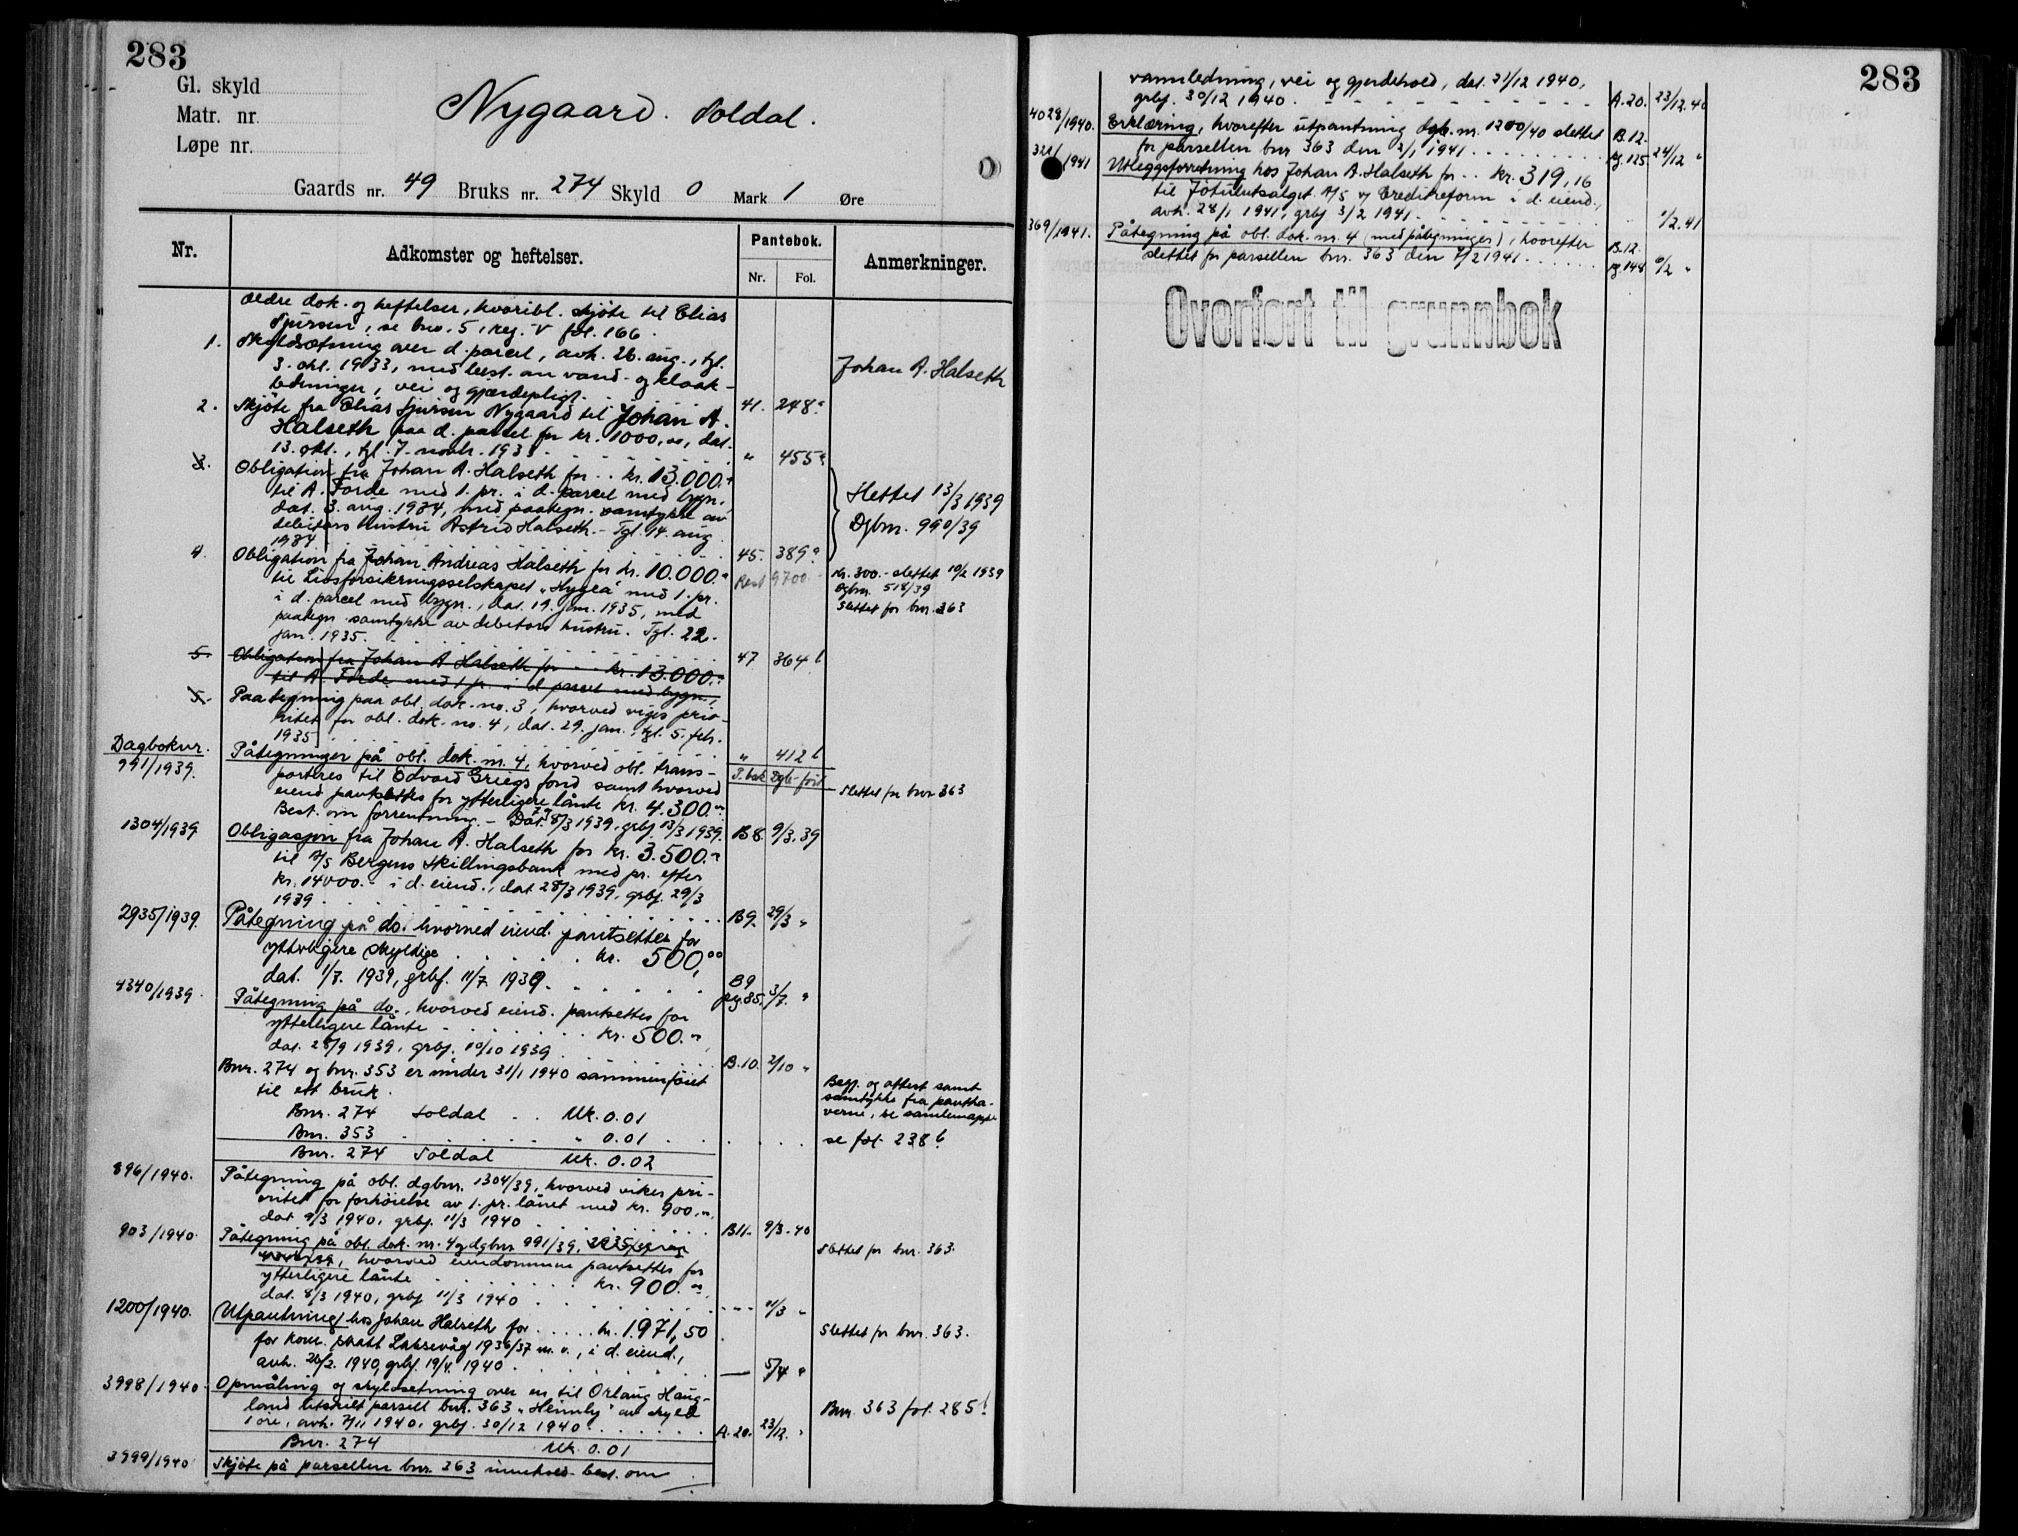 283
Gl. skyld
Matr. nr.
Løpe nr.
Nygaard. Soldal.
Gaards nr. 49 Bruks nr. 274 Skyld 0 Mark 1 Øre
Nr. Adkomster og heftelser. Pantebok. Anmerkninger.
Nr. Fol.
Ældre dok. og heftelser, hvoribl. skjøte til Elias
Sjursen, se bno. 5, reg. V fol. 166.
1. Skyldsætning over d. parcel, avh. 26. aug., tgl.
3. okt. 1933, med best. om vand- og kloak-
ledninger, vei og gjærdepligt. 41. 248a
Johan A. Halseth
2. Skjøte fra Elias Sjursen Nygaard til Johan A.
Halseth paa d. parcel for kr. 1000,00, dat.
13. okt., tgl. 7. novbr. 1933. " 455a
3. Obligation fra Johan A. Halseth for kr. 13.000.-
til A. Førde med 1. pr. i d. parcel med bygn.,
dat. 3. aug. 1934, med paategn. samtykke av
debitors hustru Astrid Halseth. Tgl. 14. aug.
1934. 45. 389a
Slettet 13/3 1939
Dgbnr. 990/39
4. Obligation fra Johan Andreas Halseth for kr. 10.000.-
til Livsforsikringsselskapet "Hygea" med 1. pr.
i d. parcel med bygn., dat. 19. jan. 1935, med
paategn. samtykke av debitors hustru. Tgl. 22.
jan. 1935. 47 364b
Rest 9700.-
Kr. 300.- slettet 10/2 1939
Dgbnr. 518/39
Slettet for bnr. 363
5. Obligation fra Johan A. Halseth for kr. 13.000.-
til A. Førde med 1. pr. i d. parcel med bygn.,
5. Paategning paa obl. dok. no. 3, hvorved viges prio-
ritet for obl. dok. no. 4, dat. 29. jan., tgl. 5. febr.
1935. " 412b
Dagboknr.
991/1939. Påtegninger på obl. dok. nr. 4, hvorved obl. trans-
porteres til Edvard Griegs fond samt hvorved
eiend. pantsettes for ytterligere lånte kr. 4.300.-
Best. om forrentning. - Dat. 8/3 1939, grbf. 13/3 1939. B8. 9/3.39
P.bok Dgb-ført
Slettet for bnr 363
1304/1939. Obligasjon fra Johan A. Halseth for kr. 3.500.-
til A/S Bergens Skillingsbank med pr. efter
kr. 14000.- i d. eiend., dat. 28/3 1939, grbf. 29/3
1939. B9. 29/3 "
2935/1939. Påtegning på do. hvorved eiend. pantsettes for
ytterligere skyldige kr. 500,00
dat. 1/7. 1939, grbf. 11/7 1939. B9 pg. 85. 3/7. "
4340/1939. Påtegning på do., hvorved eiend. pantsettes for
ytterligere lånte kr. 500.-,
dat. 28/9 1939, grbf. 10/10 1939. B.10. 2/10 "
Bnr. 274 og bnr. 353 er under 31/1 1940 sammenføiet
til ett bruk.
Bnr. 274 Soldal Mk. 0.01
Bnr. 353 " 0.01
Bnr. 274 Soldal Mk. 0.02
Begj. og attest samt
samtykke fra pantha-
verne, se samlemappe
se fol. 238b.
896/1940. Påtegning på obl. dgbnr. 1304/39, hvorved vikes pri-
oritet for forhøielse av 1. pr. lånet med kr. 900.-,
dat. 9/3 1940, grbf. 11/3 1940. B11. 9/3.40
903/1940. Påtegning på obl. dok. nr. 4 og dgbnr 991/39,
hvorved eiendommene pantsettes for
ytterligere lånte kr. 900.-,
dat. 8/3 1940, grbf 11/3 1940. 11/3 "
Slettet for bnr. 363.
1200/1940. Utpantning hos Johan Halseth for kr. 1.971,50
for kom. skatt Laksevåg 1936/37 m.v., i d. eiend.,
avh. 26/2. 1940, grbf. 19/4. 1940. 5/4 "
Slettet for bnr. 363.
3998/1940. Opmåling og skyldsetning over en til Orlaug Haug-
land utskilt parsell bnr. 363 "Heimly" av skyld
1 øre, avh. 7/11 1940, grbf. 30/12 1940. A.20. 23/12. "
Bnr. 363 fol. 285b
Bnr. 274 Mk. 0.01
3999/1940 Skjøte på parsellen bnr. 363 inneholdt best. om
283
vannledning, vei og gjerdehold, dat. 21/12 1940,
grbf. 30/12 1940. A.20. 23/12.40
4028/1940. Erklæring, hvorefter utpantning dgb. nr. 1200/40 slettet
for parsellen bnr 363 den 2/1 1941. B.12. pg. 125 24/12 "
322/1941 Utleggsforretning hos Johan A. Halseth for kr. 319,16
til Jøtulutsalget A/S v/ Creditreform i d. eiend.,
avh. 28/1 1941, grbf 3/2 1941. 1/2.41
369/1941. Påtegning på obl. dok. nr. 4 (med påtegninger), hvorefter
slettet for parsellen bnr. 363 den 7/2 1941. B.12. pg. 144 6/2 "
Overført til grunnbok